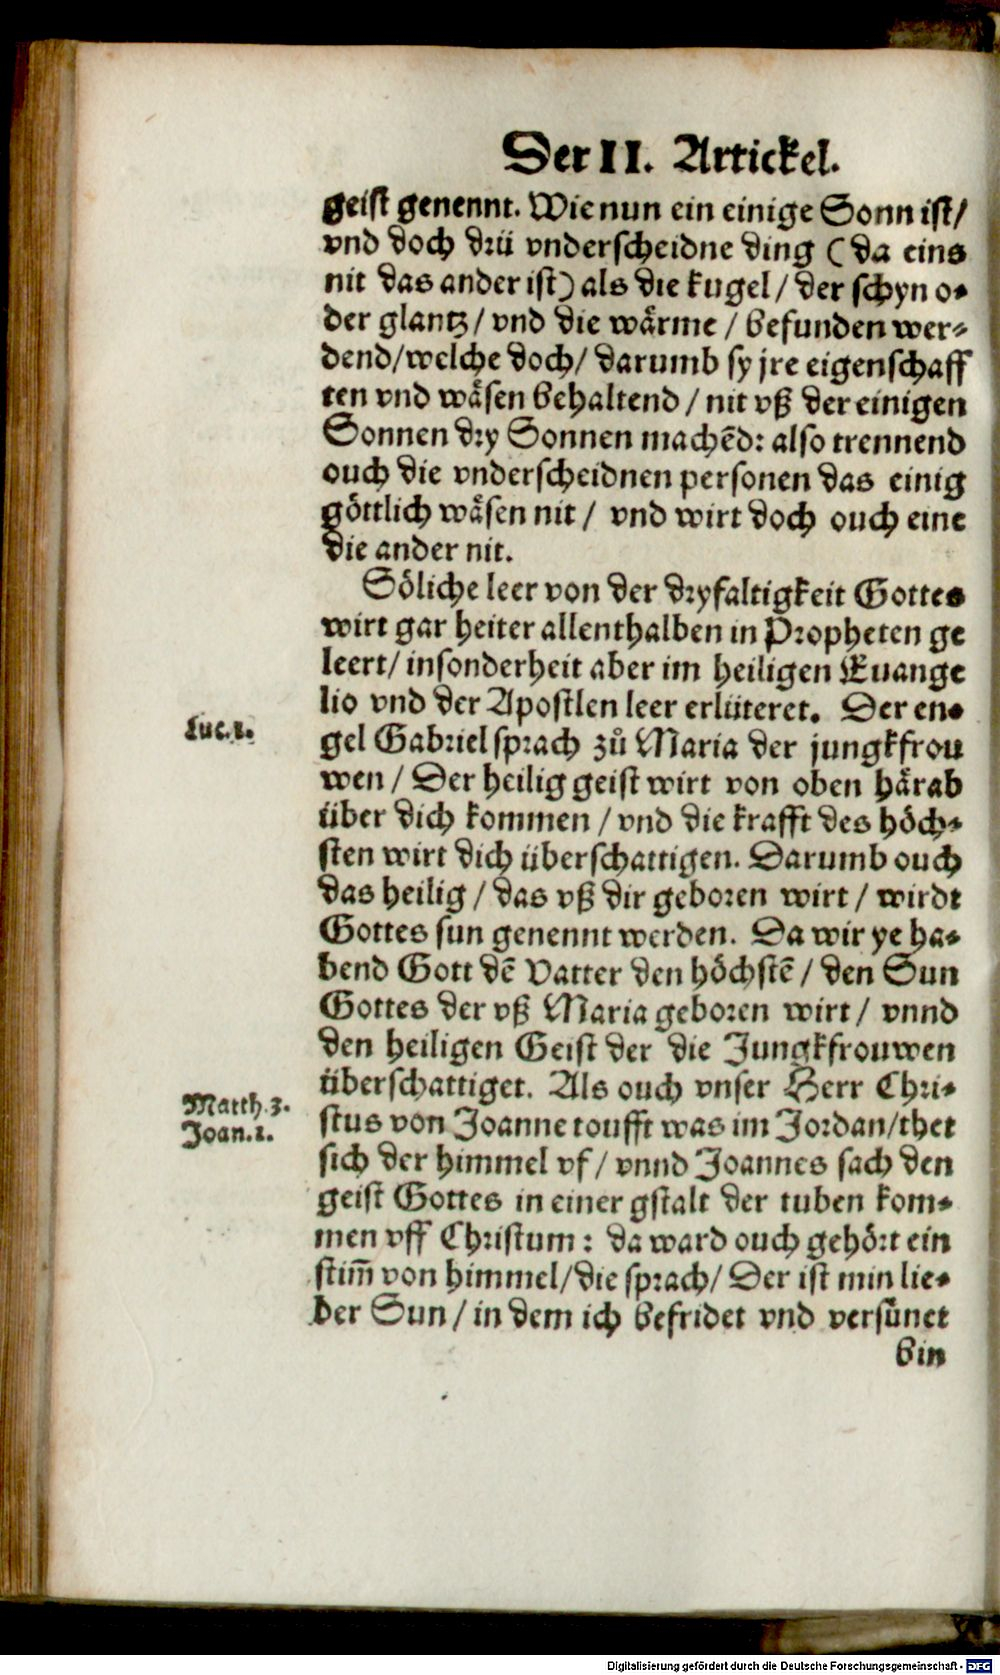 Der II. Artickel.
geist genennt. Wie nun ein einige Sonn ist/
vnd doch drü vnderscheidne ding (da eins
nit das ander ist) als die kugel/ der schyn o-
der glantz/ vnd die wårme/ befunden wer-
dend/welche doch/ darumb sy jre eigenschaff
ten vnd wåsen behaltend/ nit vß der einigen
Sonnen dry Sonnen machẽd: also trennend
ouch die vnderscheidnen personen das einig
göttlich wåsen nit/ vnd wirt doch ouch eine
die ander nit.
Söliche leer von der dryfaltigkeit Gottes
wirt gar heiter allenthalben in Propheten ge
leert/ insonderheit aber im heiligen Euange
lio vnd der Apostlen leer erlüteret. Der en-
Luc.1.
gel Gabriel sprach zů Maria der jungkfrou
wen/ Der heilig geist wirt von oben hårab
über dich kommen/ vnd die krafft des höch-
sten wirt dich überschattigen. Darumb ouch
das heilig/ das vß dir geboren wirt/ wirdt
Gottes sun genennt werden. Da wir ye ha-
bend Gott dẽ Vatter den höchstẽ/ den Sun
Gottes der vß Maria geboren wirt/ vnnd
den heiligen Geist der die Jungkfrouwen
überschattiget. Als ouch vnser Herr Chri-
Matth.3.
Joan.1.
stus von Joanne toufft was im Jordan/thet
sich der himmel vf/ vnnd Joannes sach den
geist Gottes in einer gstalt der tuben kom-
men vff Christum: da ward ouch gehört ein
stim̃ von himmel/die sprach/ Der ist min lie-
ber Sun/ in dem ich befridet vnd versünet
bin
Digitalisierung gefördert durch die Deutsche Forschungsgemeinschaft - DFG